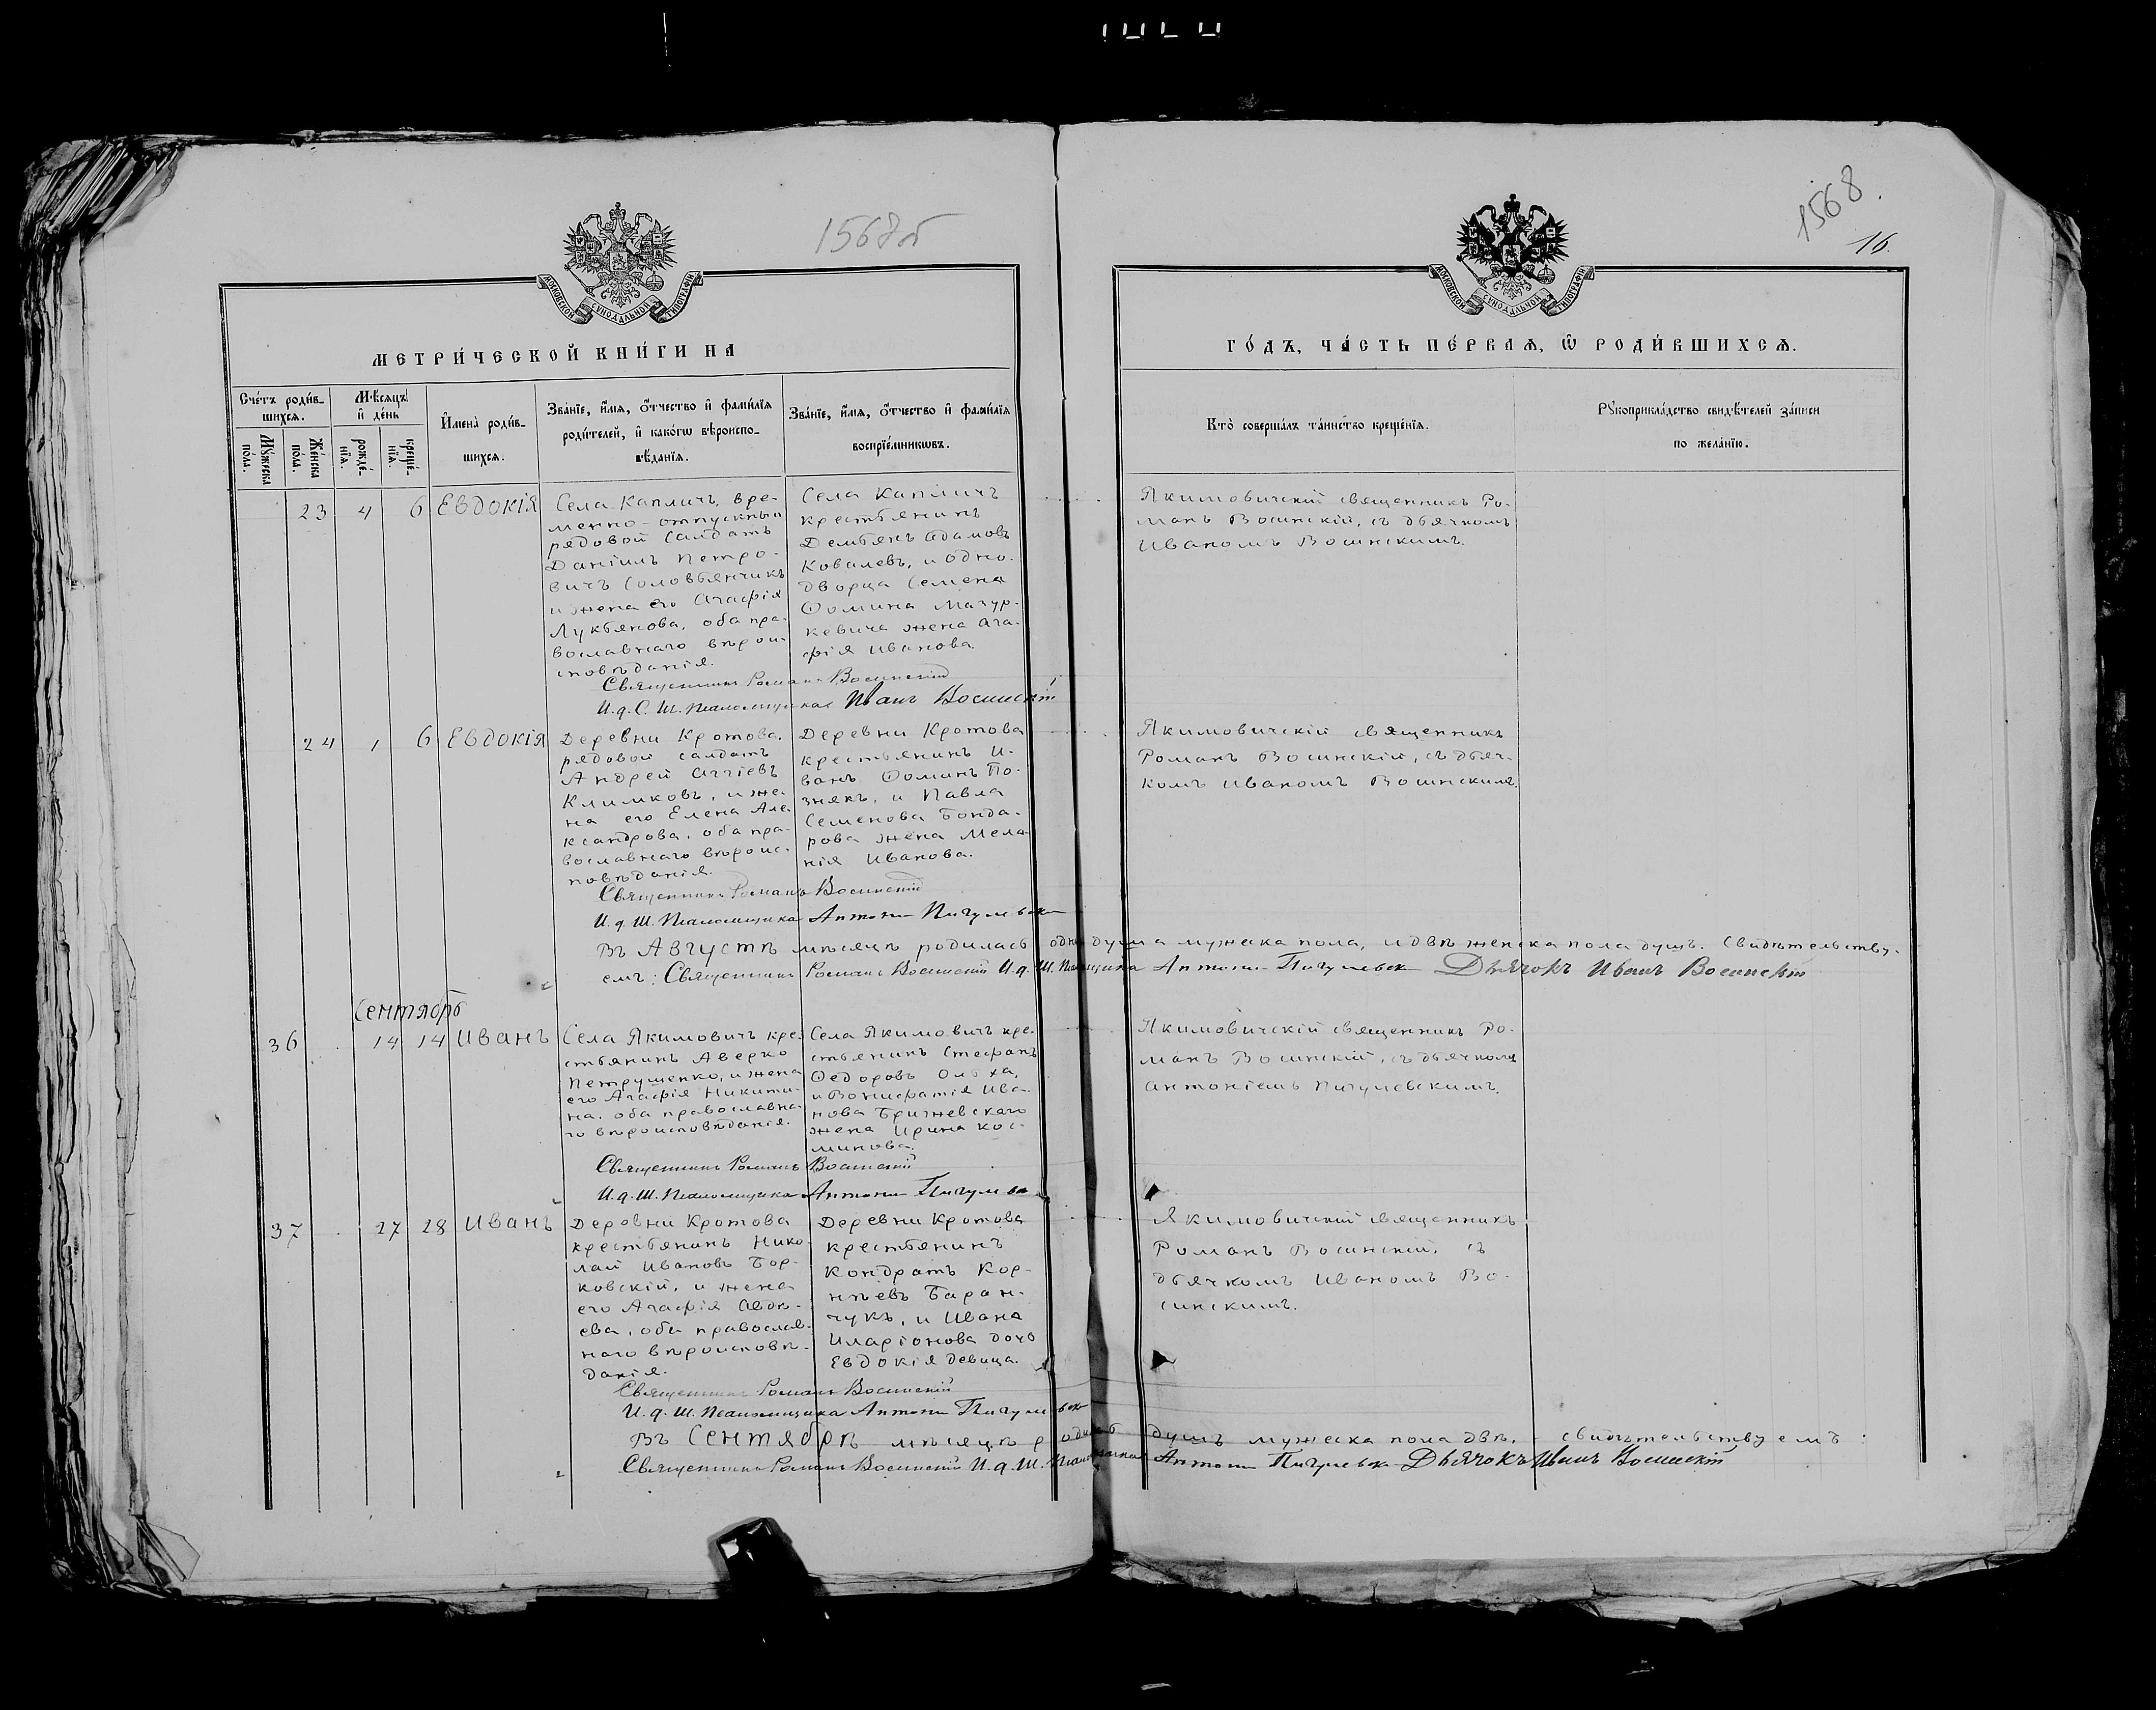 1568об
1568.
16.
МОСКОВСКОЙ СѴНОДАЛЬНОЙ ТИПОГРАФІИ
МОСКОВСКОЙ СѴНОДАЛЬНОЙ ТИПОГРАФІИ
МЕТРИ́ЧЕСКОЙ КНИ́ГИ НА
ГО́ДЪ, ЧА́СТЬ ПЕ́РВАѦ, Ѿ РОДИ́ВШИХСѦ.
Сче́тъ роди́в-
шихсѧ.
Мꙋ́жеска
по́ла.
Же́нска
по́ла.
Мѣ́сѧцъ
и҆ де́нь
рожде́-
нїѧ.
креще́-
нїѧ.
И҆мена̀ роди́в-
шихсѧ.
Зва́нїе, и҆́мѧ, ѻ҆́тчество и҆ фами́лїѧ
роди́телей, и҆ како́гѡ вѣроиспо-
вѣ́данїѧ.
Зва́нїе, и҆́мѧ, ѻ҆́тчество и҆ фами́лїѧ
воспрїе́мникѡвъ.
Кто̀ соверша́лъ та́инство креще́нїѧ.
Рꙋкоприкла́дство свидѣ́телей за́писи
по жела́нїю.
23 4 6 Евдокія
Села Капличъ, вре-
менно-отпускный
рядовой салдатъ
Даніилъ Петро-
вичъ Соловьянчикъ
и жена его Агафія
Лукьянова, оба пра-
вославнаго вѣрои-
сповѣданія.
Села Капличъ
крестьянинъ
Демьянъ Адамовъ
Ковалевъ, и одно-
дворца Семена
Ѳомина Мачур-
кевича жена Ага-
фія Иванова.
Якимовичскій священникъ Ро-
манъ Восинскій, съ дьячкомъ
Иваномъ Восинскимъ.
Священникъ Романъ Восинскій
И. д. С. Ш. Псаломщика Иванъ Восинскій
24 1 6 Евдокія
Деревни Кротова,
рядовой салдатъ
Андрей Аггіевъ
Климковъ, и же-
на его Елена Але-
ксандрова, оба пра-
вославнаго вѣроис-
повѣданія.
Деревни Кротова
крестьянинъ И-
ванъ Ѳоминъ По-
знякъ, и Павла
Семенова Бонда-
рова жена Мела-
нія Иванова.
Якимовичскій священникъ
Романъ Восинскій, съ дьяч-
комъ Иваномъ Восинскимъ.
Священникъ Романъ Восинскій
И. д. Ш. Псаломщика Антоній Пигулевск
Въ Августѣ мѣсяцѣ родилась одна душа мужеска пола, и двѣ женска пола душъ. Свидѣтельству-
емъ: Священникъ Романъ Восинскій И. д. Ш. Псаломщика Антоній Пигулевск Дьячокъ Иванъ Восинскій
Сентябрь
36 14 14 Иванъ
Села Якимовичъ кре-
стьянинъ Аверко
Петрушенко, и жена
его Агафія Никити-
на, оба православна-
го вѣроисповѣданія.
Села Якимовичъ кре-
стьянинъ Стефанъ
Ѳедоровъ Ольха,
и Вонифатія Ива-
нова Бржевскаго
жена Ирина Кос-
минова.
Якимовичскій священникъ Ро-
манъ Восинскій, съ дьячкомъ
Антоніемъ Пигулевскимъ.
Священникъ Романъ Восинскій
И. д. Ш. Псаломщика Антоній Пигулевск
37 27 28 Иванъ
Деревни Кротова
крестьянинъ Нико-
лай Ивановъ Бор-
ковскій, и жена
его Агафія Авдѣ-
ева, оба православ-
наго вѣроисповѣ-
данія.
Деревни Кротова
крестьянинъ
Кондратъ Кор-
нѣевъ Баран-
чукъ, и Ивана
Иларіонова дочь
Евдокія девица.
Якимовичскій священникъ
Романъ Восинскій, съ
дьячкомъ Иваномъ Во-
синскимъ.
Священникъ Романъ Восинскій
И. д. Ш. Псаломщика Антоній Пигулевск
Въ Сентябрѣ мѣсяцѣ родилось душъ мужеска пола двѣ. – свидѣтельствуемъ:
Священникъ Романъ Восинскій И. д. Ш. Псаломщика Антоній Пигулевск Дьячокъ Иванъ Восинскій